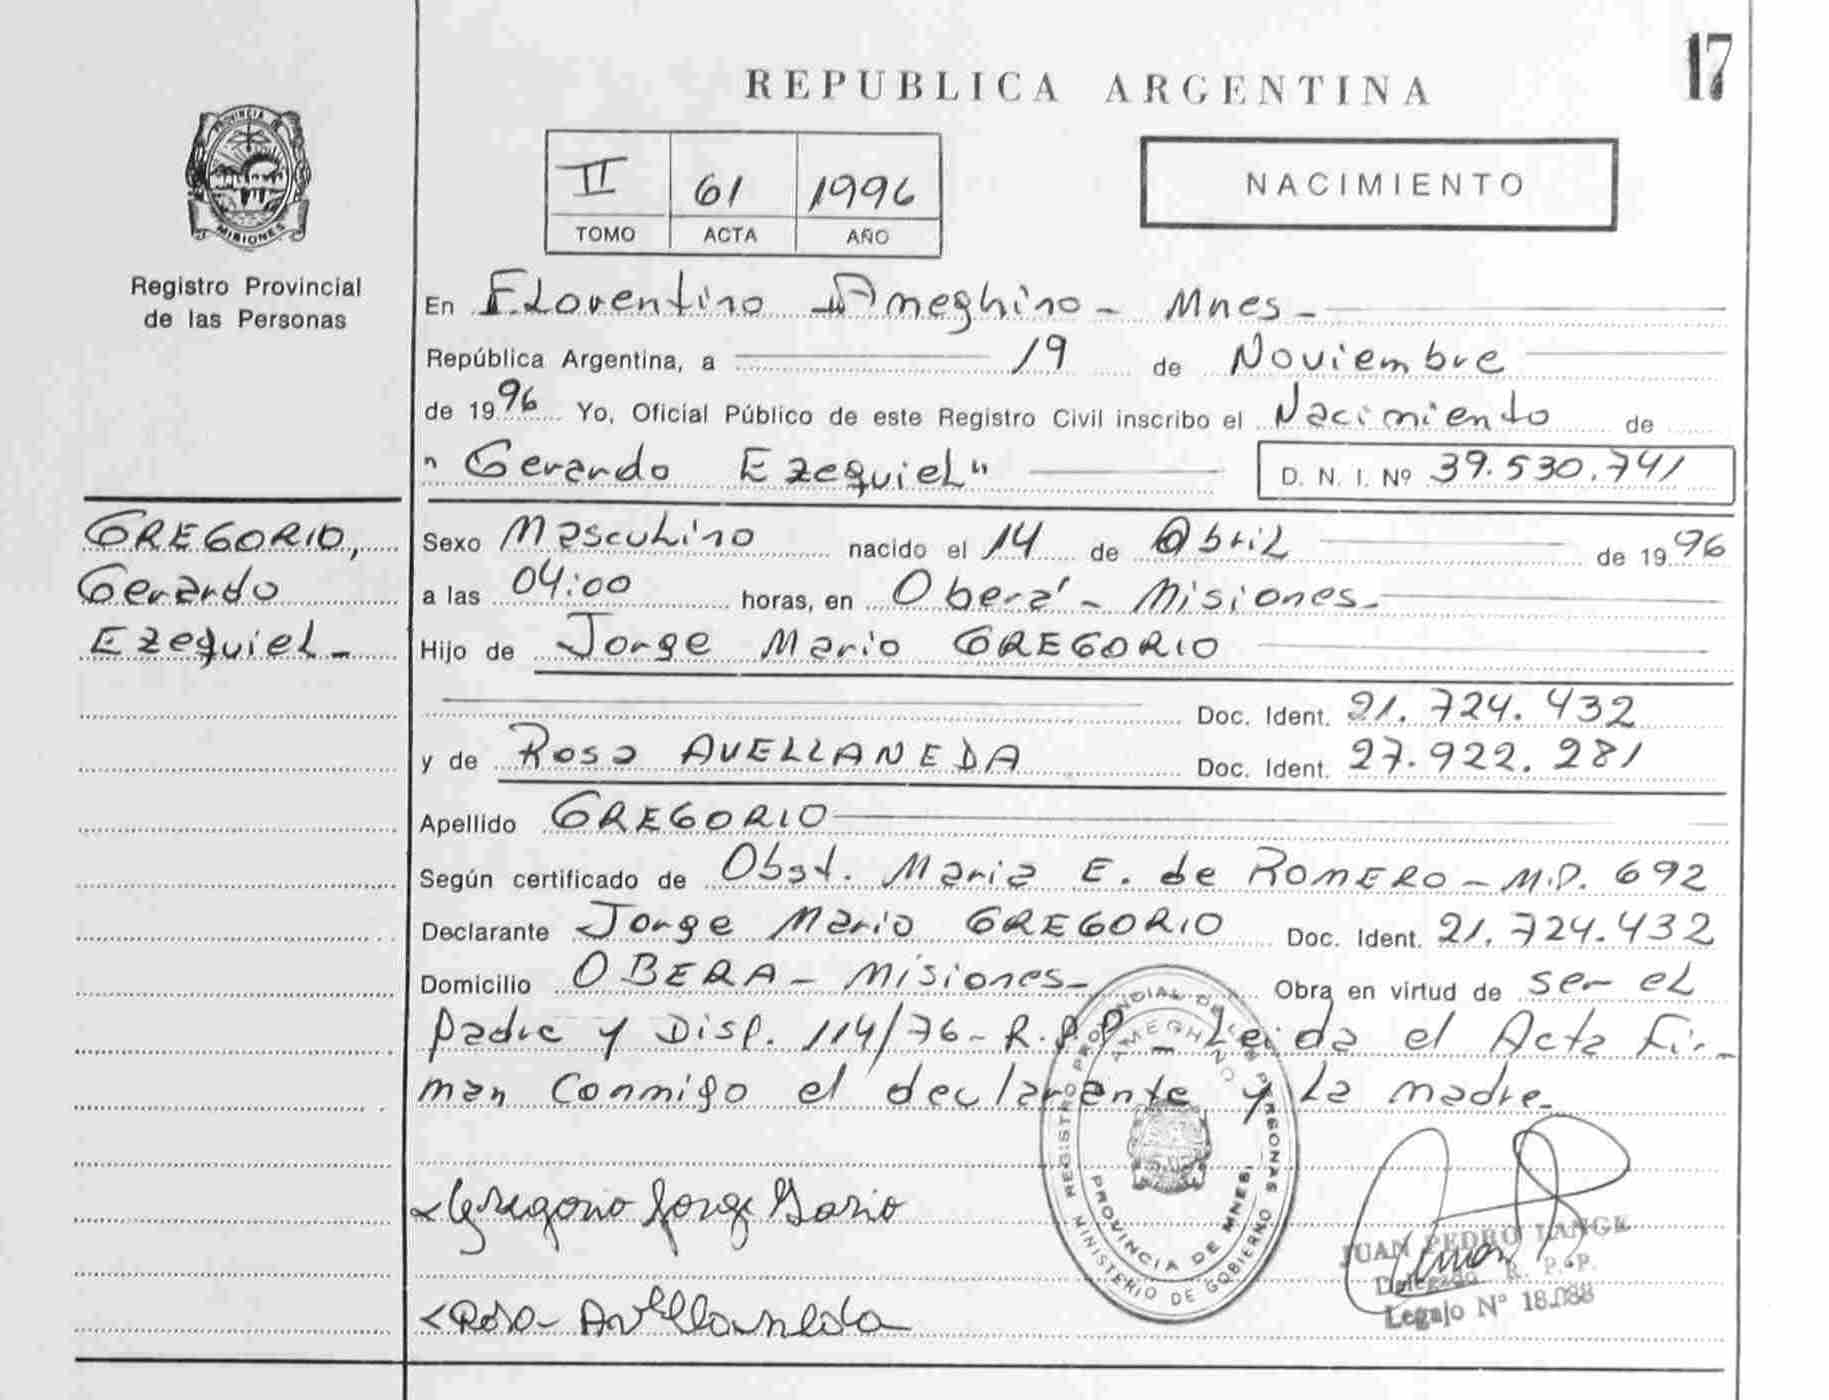 17
REPUBLICA ARGENTINA
PROVINCIA DE
MISIONES
Registro Provincial
de las Personas
II 61 1996
TOMO ACTA AÑO
NACIMIENTO
En Florentino Ameghino - Mnes -
República Argentina, a 19 de Noviembre
de 1996 Yo, Oficial Público de este Registro Civil inscribo el Nacimiento de
"Gerardo Ezequiel" D. N. I. Nº 39.530.741
GREGORIO,
Gerardo
Ezequiel -
Sexo Masculino nacido el 14 de Abril de 1996
a las 04:00 horas, en Oberá - Misiones -
Hijo de Jorge Mario GREGORIO
Doc. Ident. 21.724.432
y de Rosa AVELLANEDA Doc. Ident. 27.922.281
Apellido GREGORIO
Según certificado de Obst. Maria E. de ROMERO - M.P. 692
Declarante Jorge Mario GREGORIO Doc. Ident. 21.724.432
Domicilio OBERA - Misiones - Obra en virtud de ser el
padre y Disp. 114/76 - R.P.P - Leida el Acta Fir-
man conmigo el declarante y La madre -
REGISTRO PROVINCIAL DE LAS PERSONAS
AMEGHINO
PROVINCIA DE MNES.
MINISTERIO DE GOBIERNO
Gregorio Jorge Mario
Rosa Avellaneda
JUAN PEDRO LANGE
Delegado R. P. P.
Legajo Nº 18.088